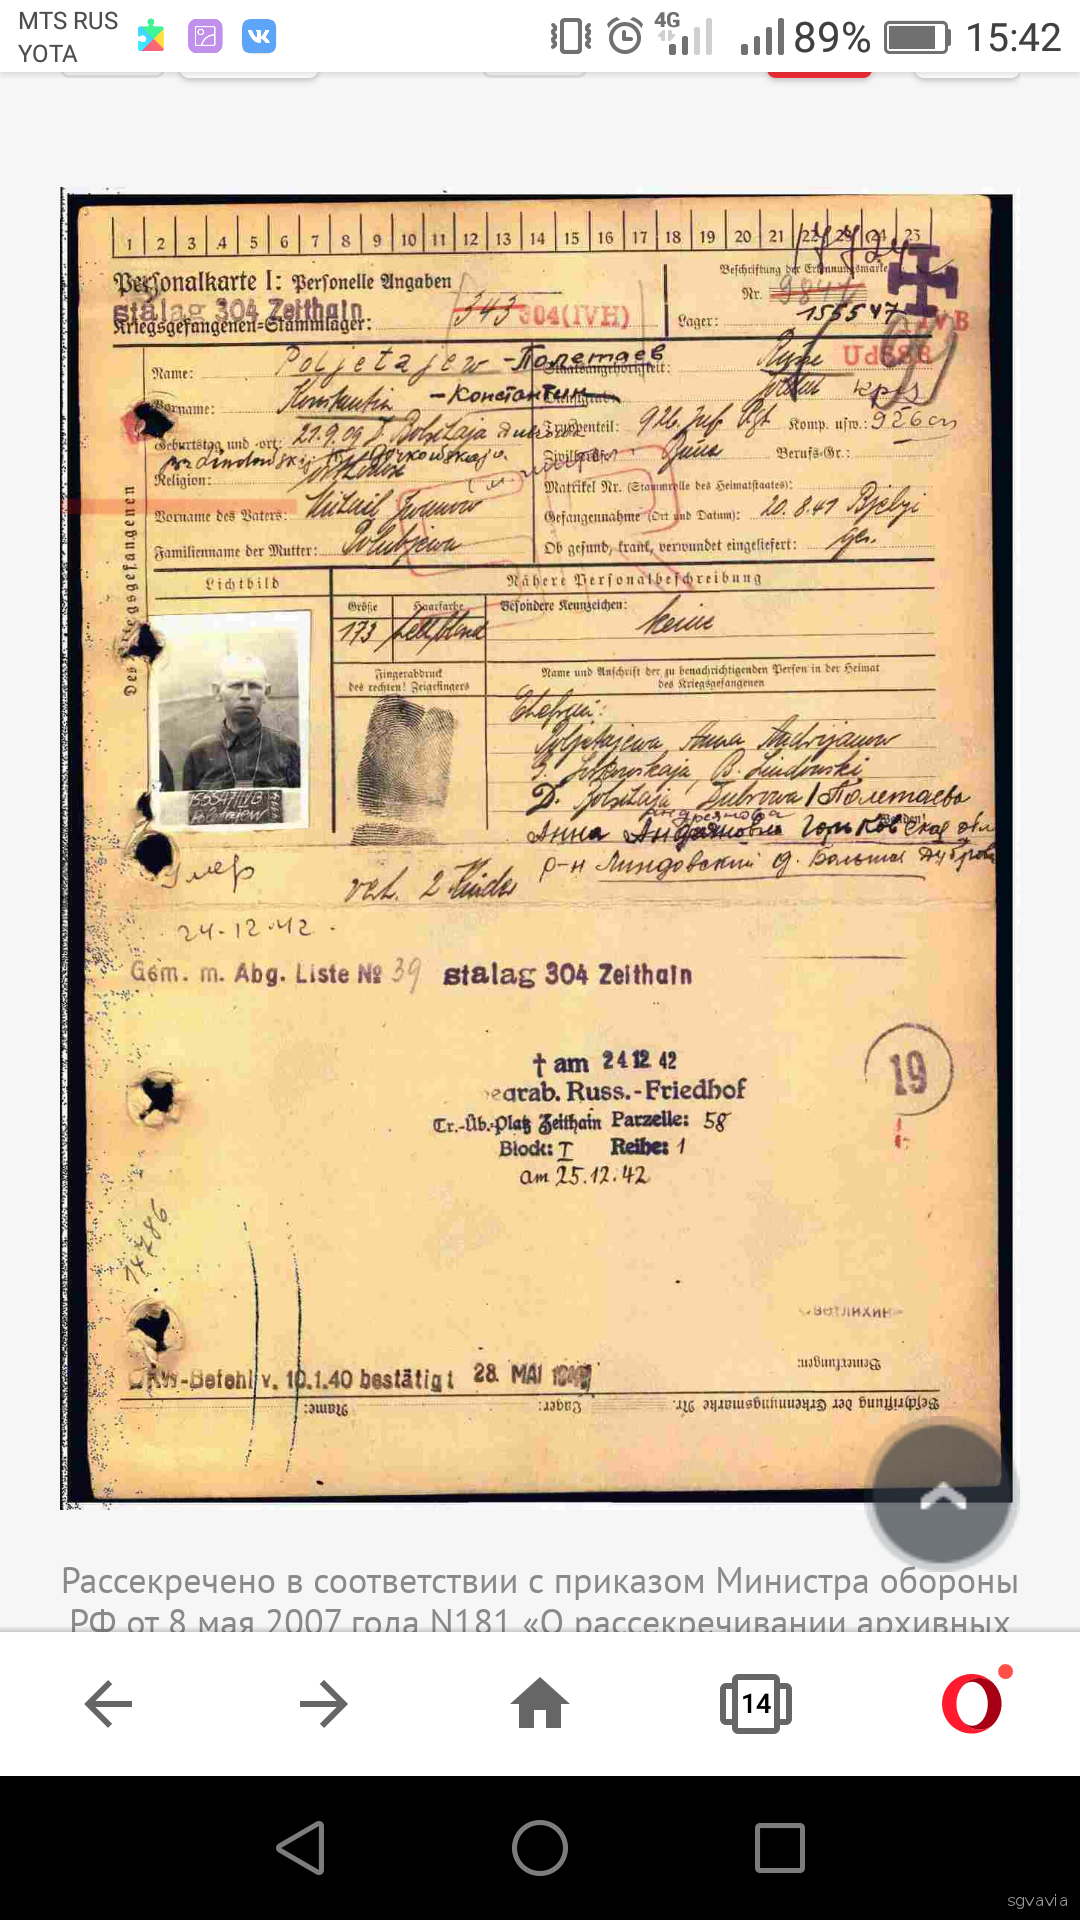 MTS RUS
YOTA
4G
89%
15:42
1 2 3 4 5 6 7 8 9 10 11 12 13 14 15 16 17 18 19 20 21 22 23 24 23
Personalkarte I: Personelle Angaben
Beschriftung der Erkennungsmarke
Nr.
stalag 304 Zeithain
343 304(IVH)
155547 IV B
Kriegsgefangenen=Stammlager:
Lager:
Name: Poljetajew - Полетаев
Staatsangehörigkeit: Russe UdSSR
Vorname: Konstantin - Константин
Geburtstag und =ort: 21.9.09
Truppenteil: 926. Inf. Rgt Komp. usw.:
Zivilberuf: Berufs=Gr.:
Religion:
Matrikel Nr. (Stammrolle des Heimatstaates):
Vorname des Vaters: Michail Iwanow
Gefangennahme (Ort und Datum): 20.8.41 Bjelyi
Familienname der Mutter: Golubjewa
Ob gesund, krank, verwundet eingeliefert: ges.
Des Kriegsgefangenen
Lichtbild
Nähere Personalbeschreibung
Größe
Haarfarbe
Besondere Kennzeichen: keine
173 hellblond
Fingerabdruck
des rechten! Zeigefingers
Name und Anschrift der zu benachrichtigenden Person in der Heimat
des Kriegsgefangenen
Ehefrau:
Poljetajewa, Anna Andrijanow
G. Gorkowskaja, B. Lindowski
D. Bolschaja Dubrowa / Полетаева
Анна Андреяновна Горьковская обл
р-н Линдовский д. Большая Дуброва
155547 IVB
Poletajew
Умер
verh. 2 Kinder
24-12-42.
Gem. m. Abg. Liste № 39 stalag 304 Zeithain
† am 24 12 42
begrab. Russ.-Friedhof
Tr.-Üb.-Platz Zeithain Parzelle: 58
Block: I Reihe: 1
am 25.12.42
19
14786
Светлихин
Bemerkungen:
OKW-Befehl v. 10.1.40 bestätigt 28. MAI
Beschriftung der Erkennungsmarke Nr. Lager: Name:
Рассекречено в соответствии с приказом Министра обороны
РФ от 8 мая 2007 года N181 «О рассекречивании архивных
14
sgvavia